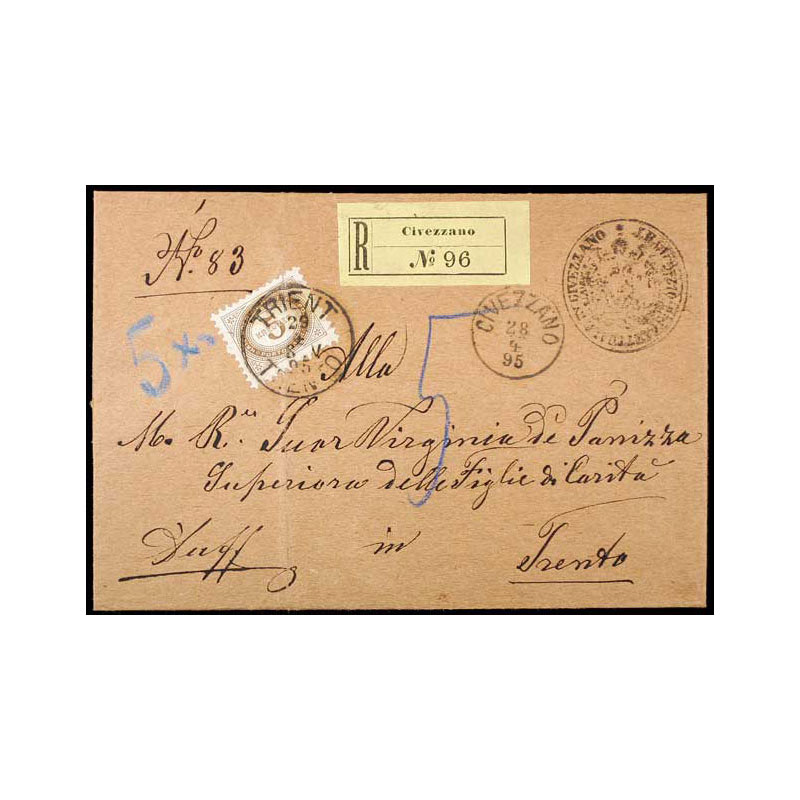 No. 83
R
Civezzano
No 96
CIVEZZANO
28
4
95
TRIENT
29
95
TRENTO
5
5 x.
5
Alla
M. R. Suor Virginia de Panizza
Superiora delle Figlie di Carità
in
Trento
CIVEZZANO